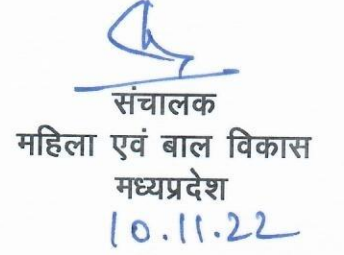 संचालक
महिला एवं बाल विकास
मध्यप्रदेश
10.11.22